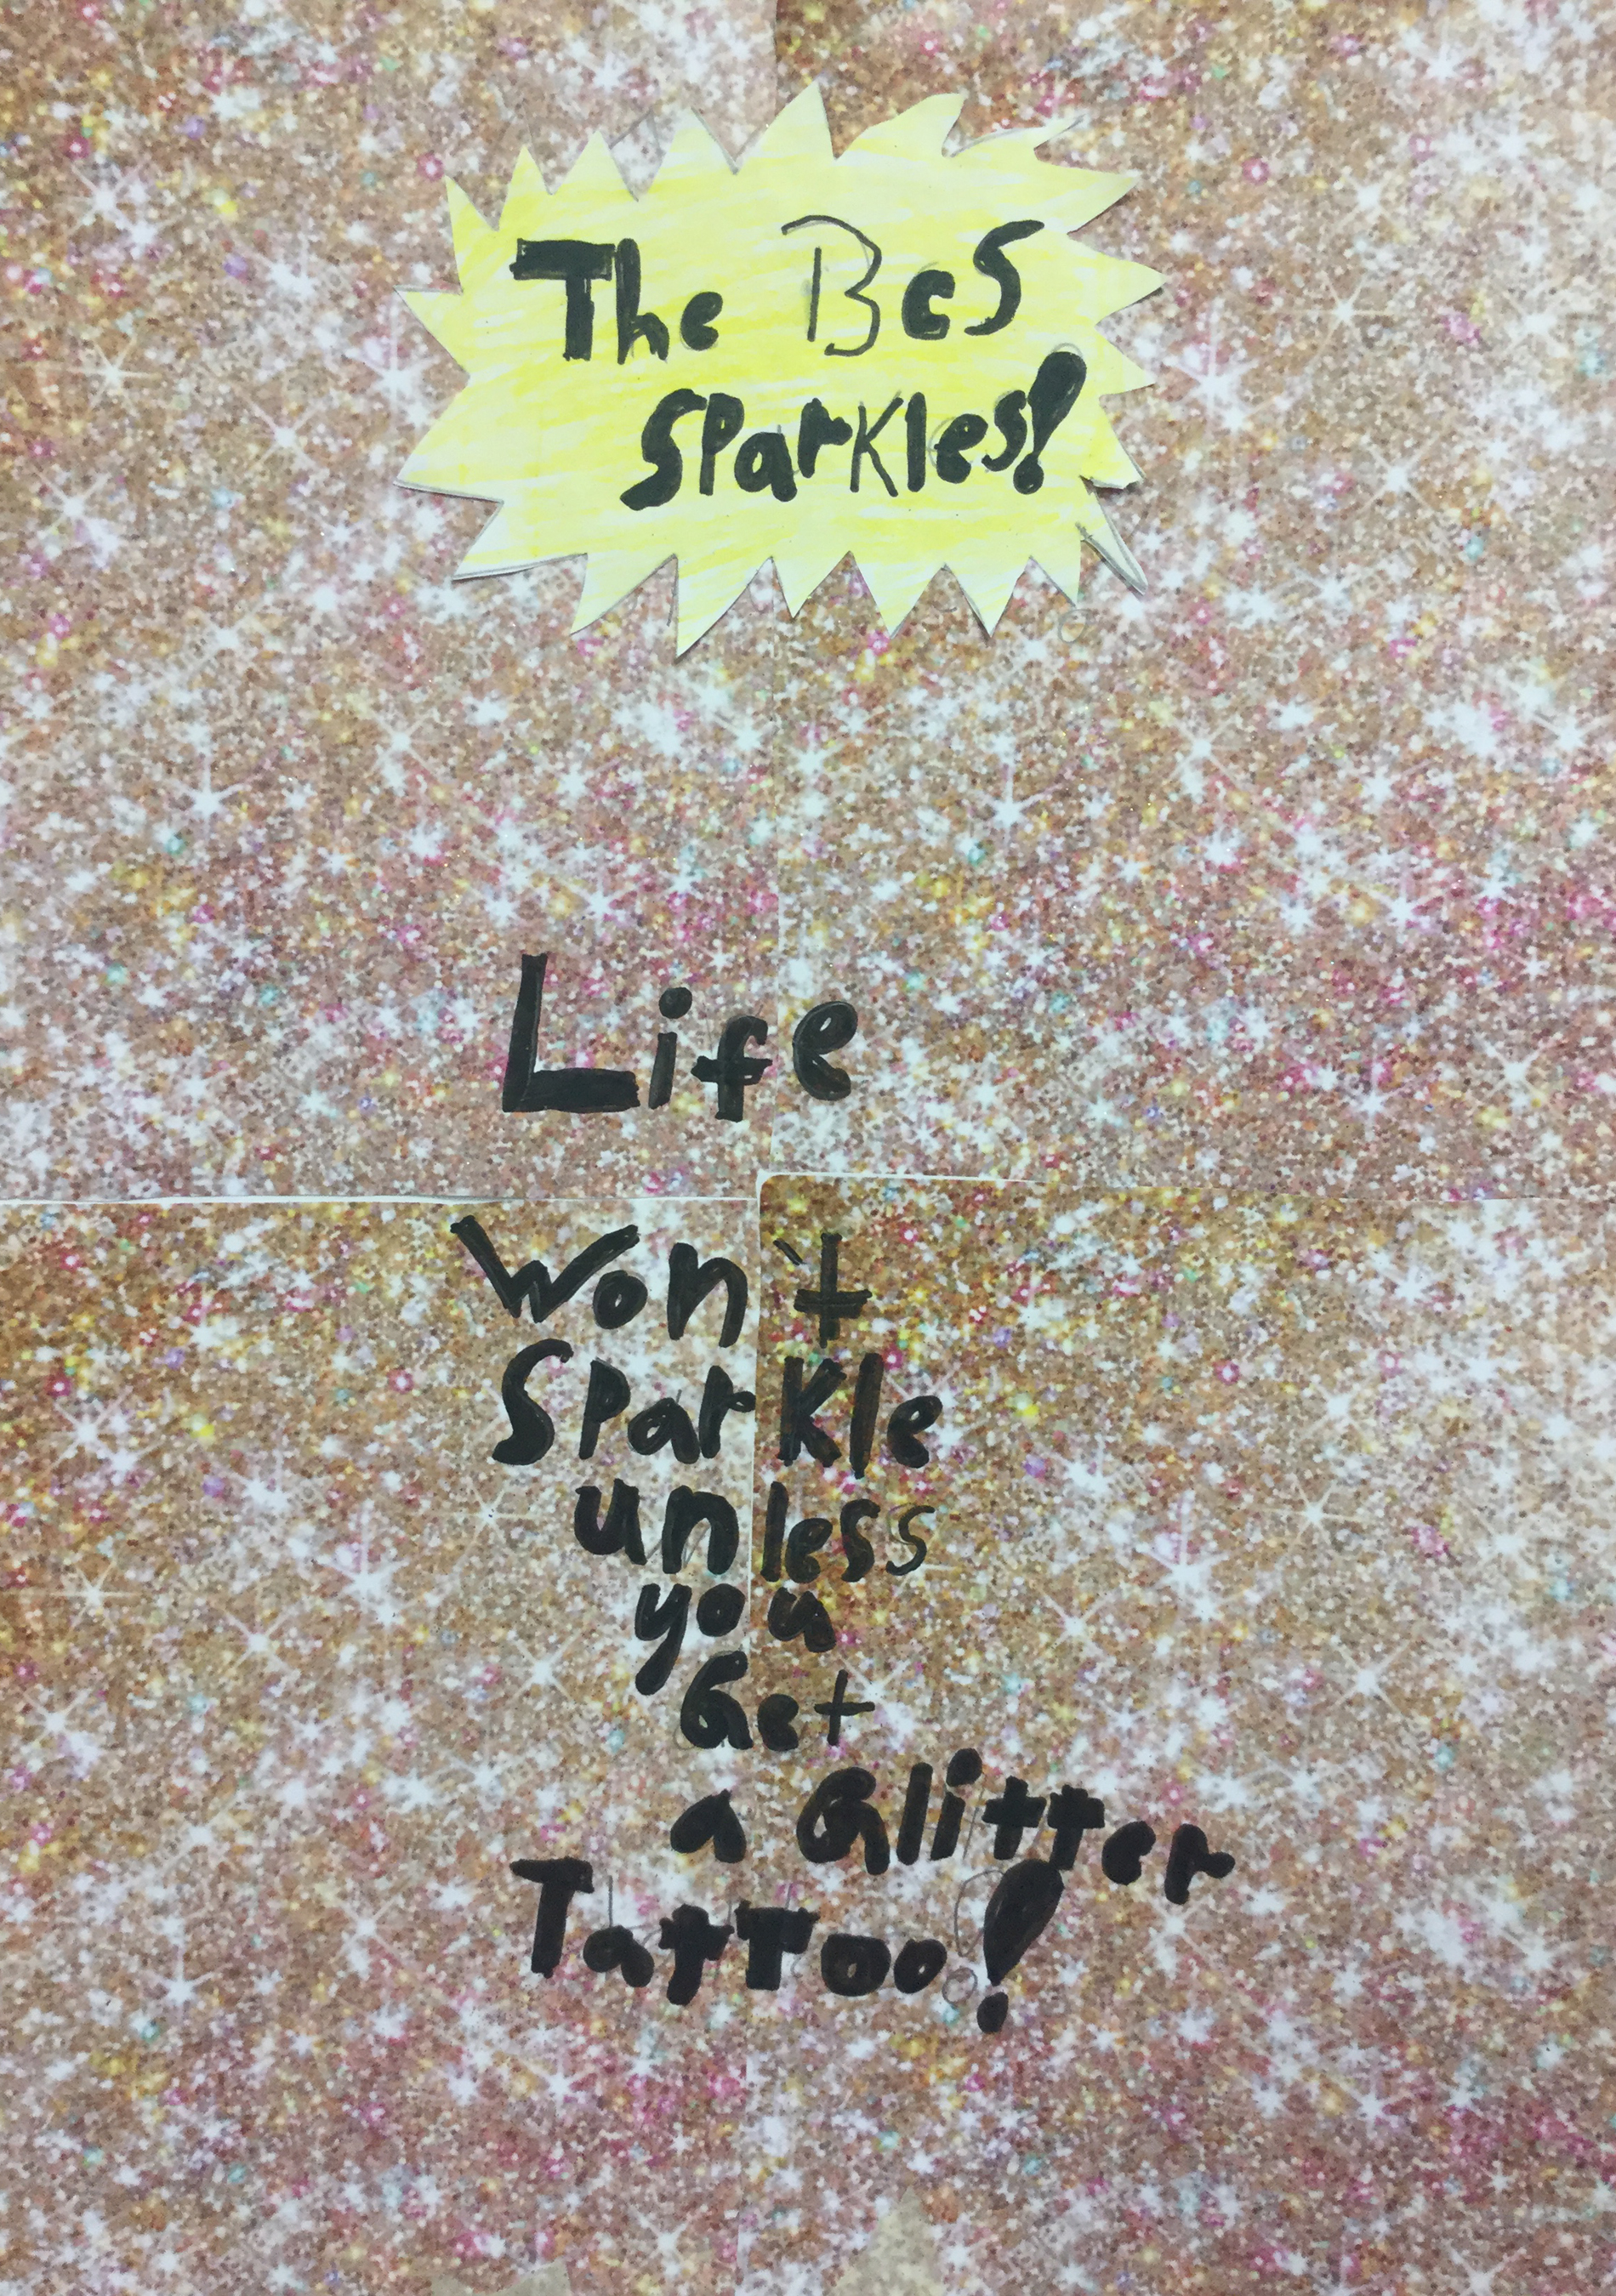 The BeS
SParKles!
Life
Won't
SParKle
unless
you
Get
a Glitter
Tattoo!